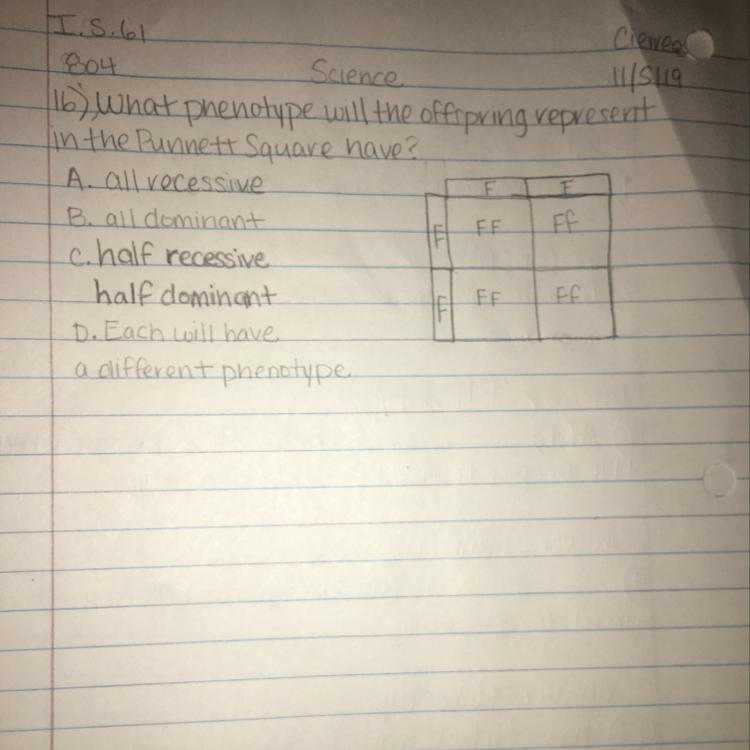 I.S.61
804 Science 11/5/19
16) What phenotype will the offspring represent
in the Punnett Square have?
A. all recessive
B. all dominant
C. half recessive
half dominant
D. Each will have
a different phenotype
F F
F FF Ff
F FF Ff